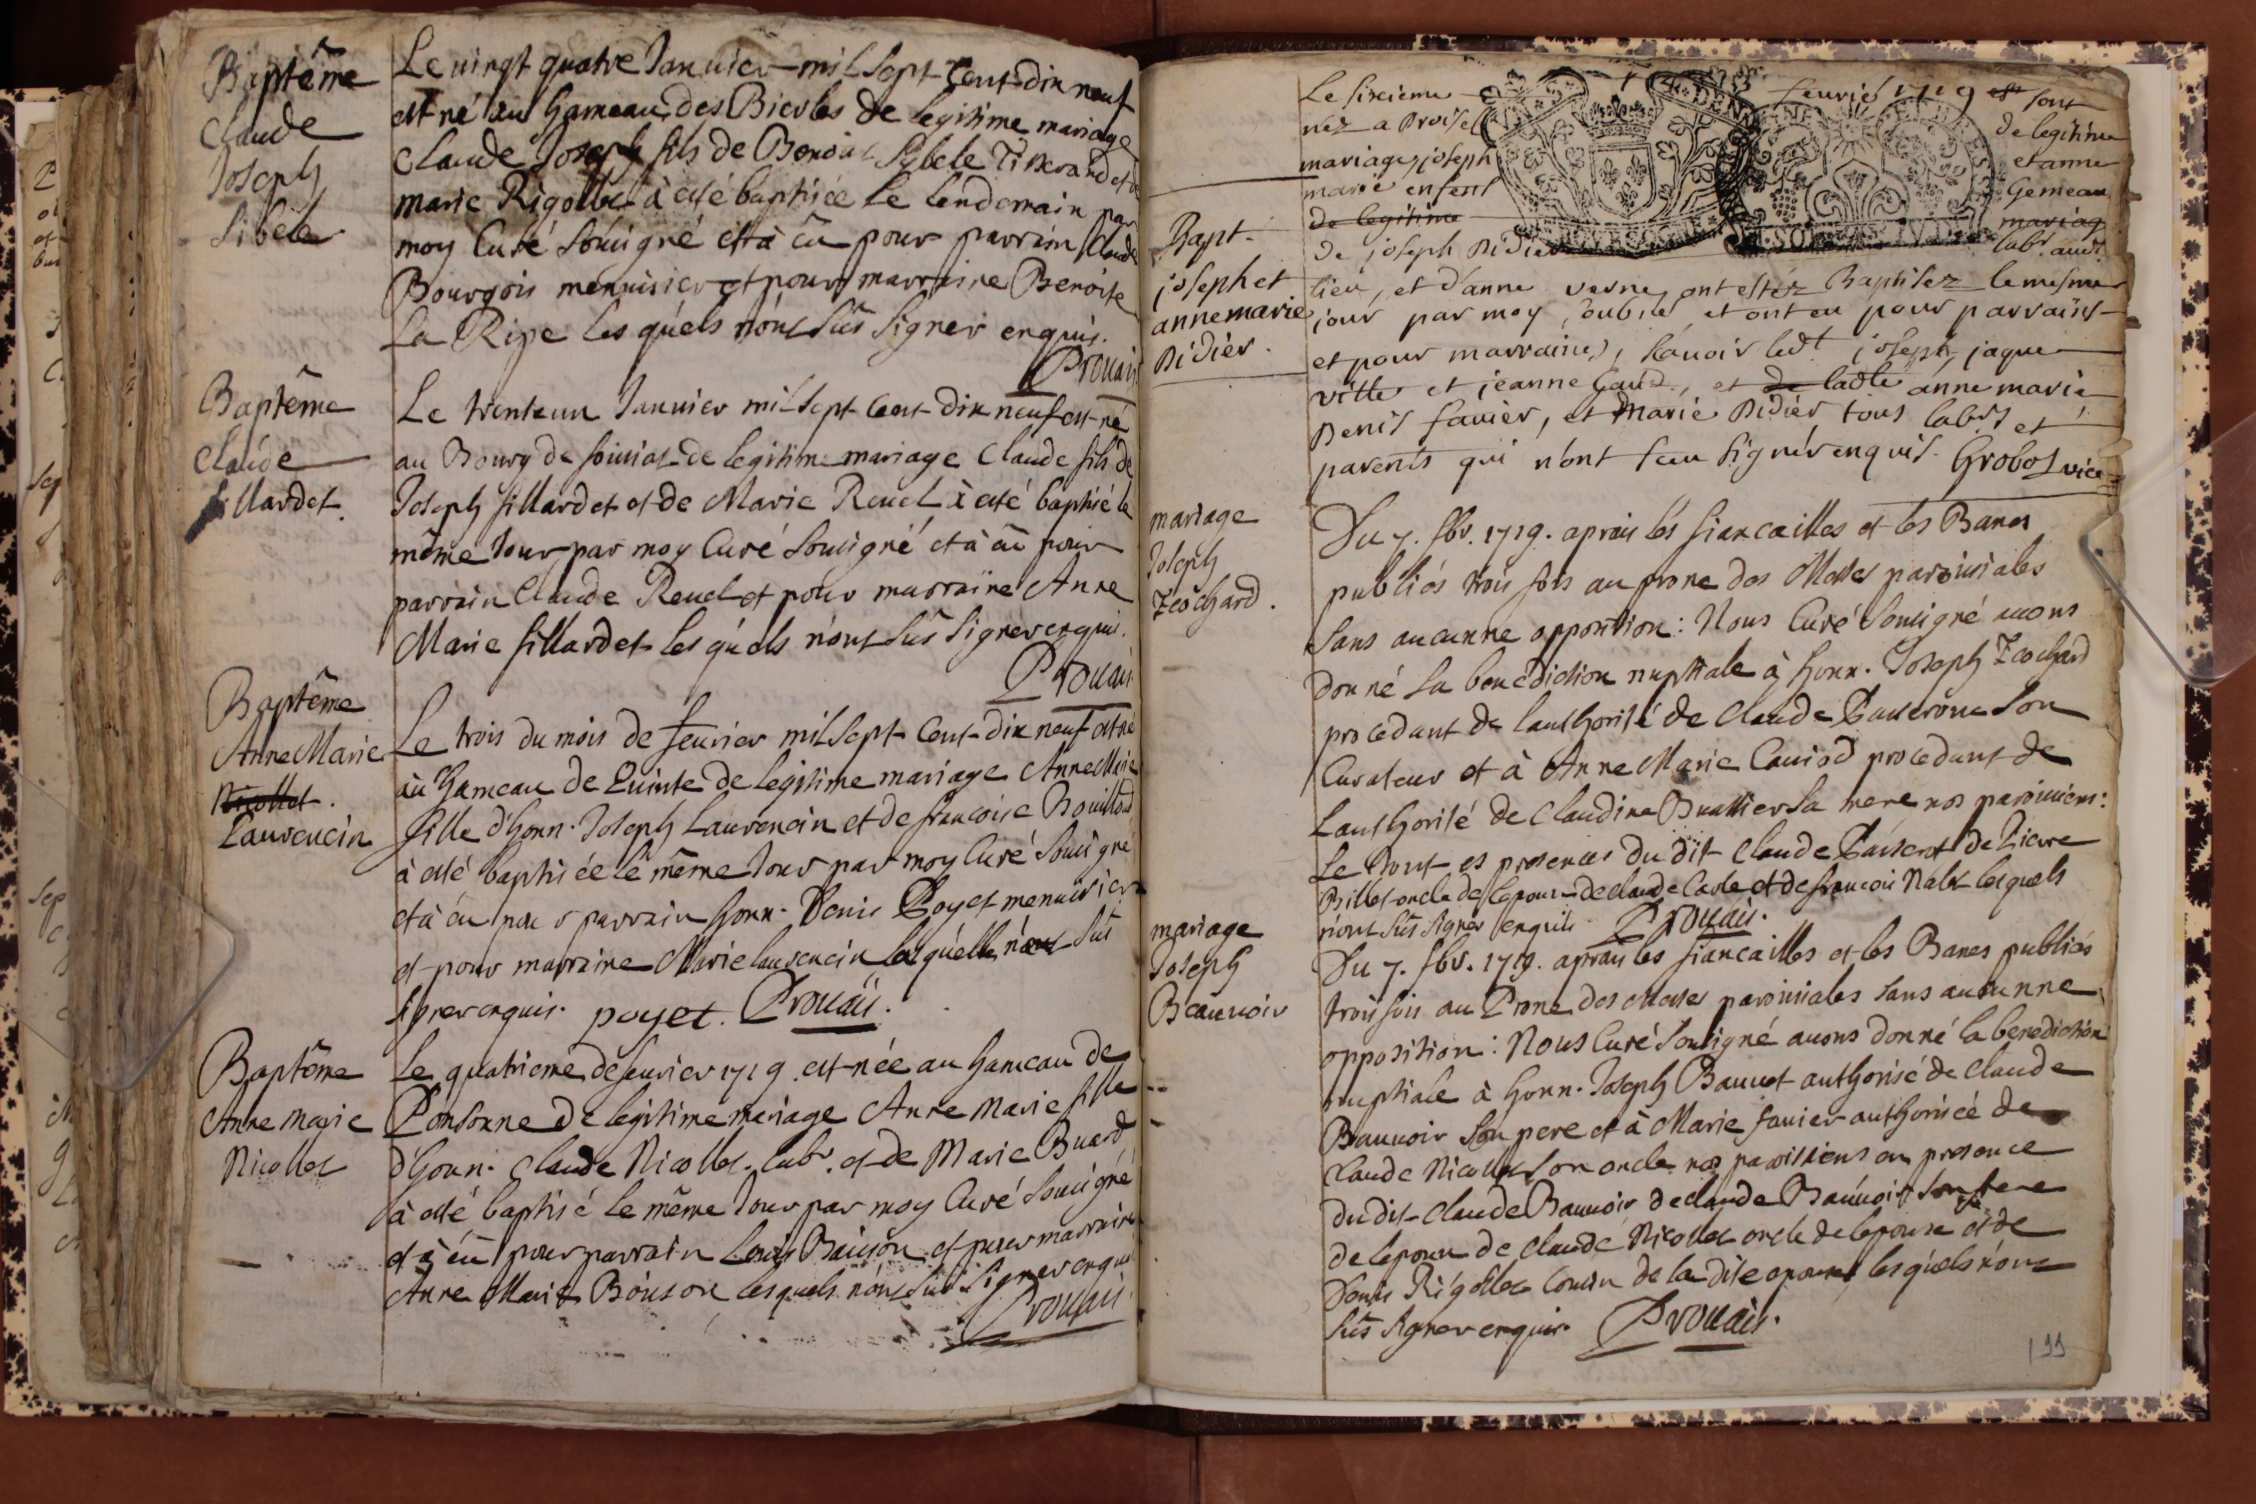 Baptême
Claude
Joseph
Sibele
Le vingt quatre Januier mil sept cent dix neuf
est né au hameau des Bierles de legitime mariage
Claude Joseph fils de Benoit Sibele Tisserand et de
marie Rigollet à été baptisée le lendemain par
moy Curé soussigné et à eû pour parrain Claude
Bourgois menuisier et pour marraine Benoite
La Ripe lesquels n'ont sûs signer enquis.
Prouais
Baptême
Claude
fillardet.
Le trenteun Januier mil sept Cent dix neuf est né
au Bourg de de legitime mariage Claude fils de
Joseph fillardet et de Marie Reuel à été baptisé le
même Jour par moy Curé soussigné et à eû pour
parrain Claude Reuel et pour marraine Anne
Marie fillardet lesquels n'ont sûs signer enquis.
Prouais
Baptême
Anne Marie
Nicollet.
Laurencin
Le trois du mois de feurier mil sept Cent dix neuf est né
au hameau de Quinte de legitime mariage Anne Marie
fille d'honn. Joseph Laurencin et de francoise Bouillond
à été baptisée le même Jour par moy Curé soussigné
et à eu pour parrain honn. Denis Poyet menuisier
et pour marraine Marie laurencin laquelle n'a sûs
signer enquis. poyet. Prouais.
Baptême
Anne Marie
Nicollet
Le quatrieme de feurier 1719. est née au hameau de
Ponsonne de legitime mariage Anne Marie fille
d'honn. Claude Nicollet. labr. et de Marie Buard
à été baptisé le même Jour par moy Curé soussigné
et à eû pour parrain Louis Baiison et pour marraine
Anne Marie Bouson lesquels n'ont sus signer enquis
Prouais
Le sixieme feurier 1719 est sont
nez a de legitime
mariage, joseph et anne
marie enfent Gemeau
de legitime mariag
de joseph Didier labr. aud.
Bapt.
joseph et
anne marie
Didier.
lieu, et d'anne verne, ont estéz Baptisez le mesme
jour par moy soubné et ont eu pour parrains
et pour marraines, sauoir ledt joseph, jaque
ville et jeanne Gaud, et de ladte anne marie
Denis fauier, et Marie Didier tous labrs et
parents qui n'ont sceu signer enquis. Grobos vice
mariage
Joseph
Trochard.
Du 7. fbv. 1719. aprais les fiancailles et les Bancs
publiés trois fois au prone des Messes paroissiales
sans aucunne opposition: Nous Curé soussigné auons
donné la benediction nuptiale à honn. Joseph Trochard
procedant de lauthorité de Claude son
Curateur et à Anne Marie Cauiod procedant de
lauthorité de Claudine Buattier sa mere nos paroissiens:
Le tout es presences du dit Claude de Pierre
Billet oncle de lepoux de claude et de francois lesquels
n'ont sûs signer enquis Prouais.
mariage
Joseph
Beauuoir
Du 7. fbv. 1719. aprais les fiancailles et les Bancs publiés
trois fois au Prone des Messes paroissiales sans aucunne
opposition: Nous Curé soussigné auons donné la benediction
nuptiale à honn. Joseph Bauuet authorisé de Claude
Bauuoir son pere et à Marie fauier authorisée de
Claude Nicollet son oncle nos paroissiens en presence
du dit Claude Bauuoir de claude Bauuoir son frere
de lepoux de Claude Nicollet oncle de lepouse et de
Denis Rigollet Cousin de la dite epouse lesquels n'ont
sûs signer enquis. Prouais.
199